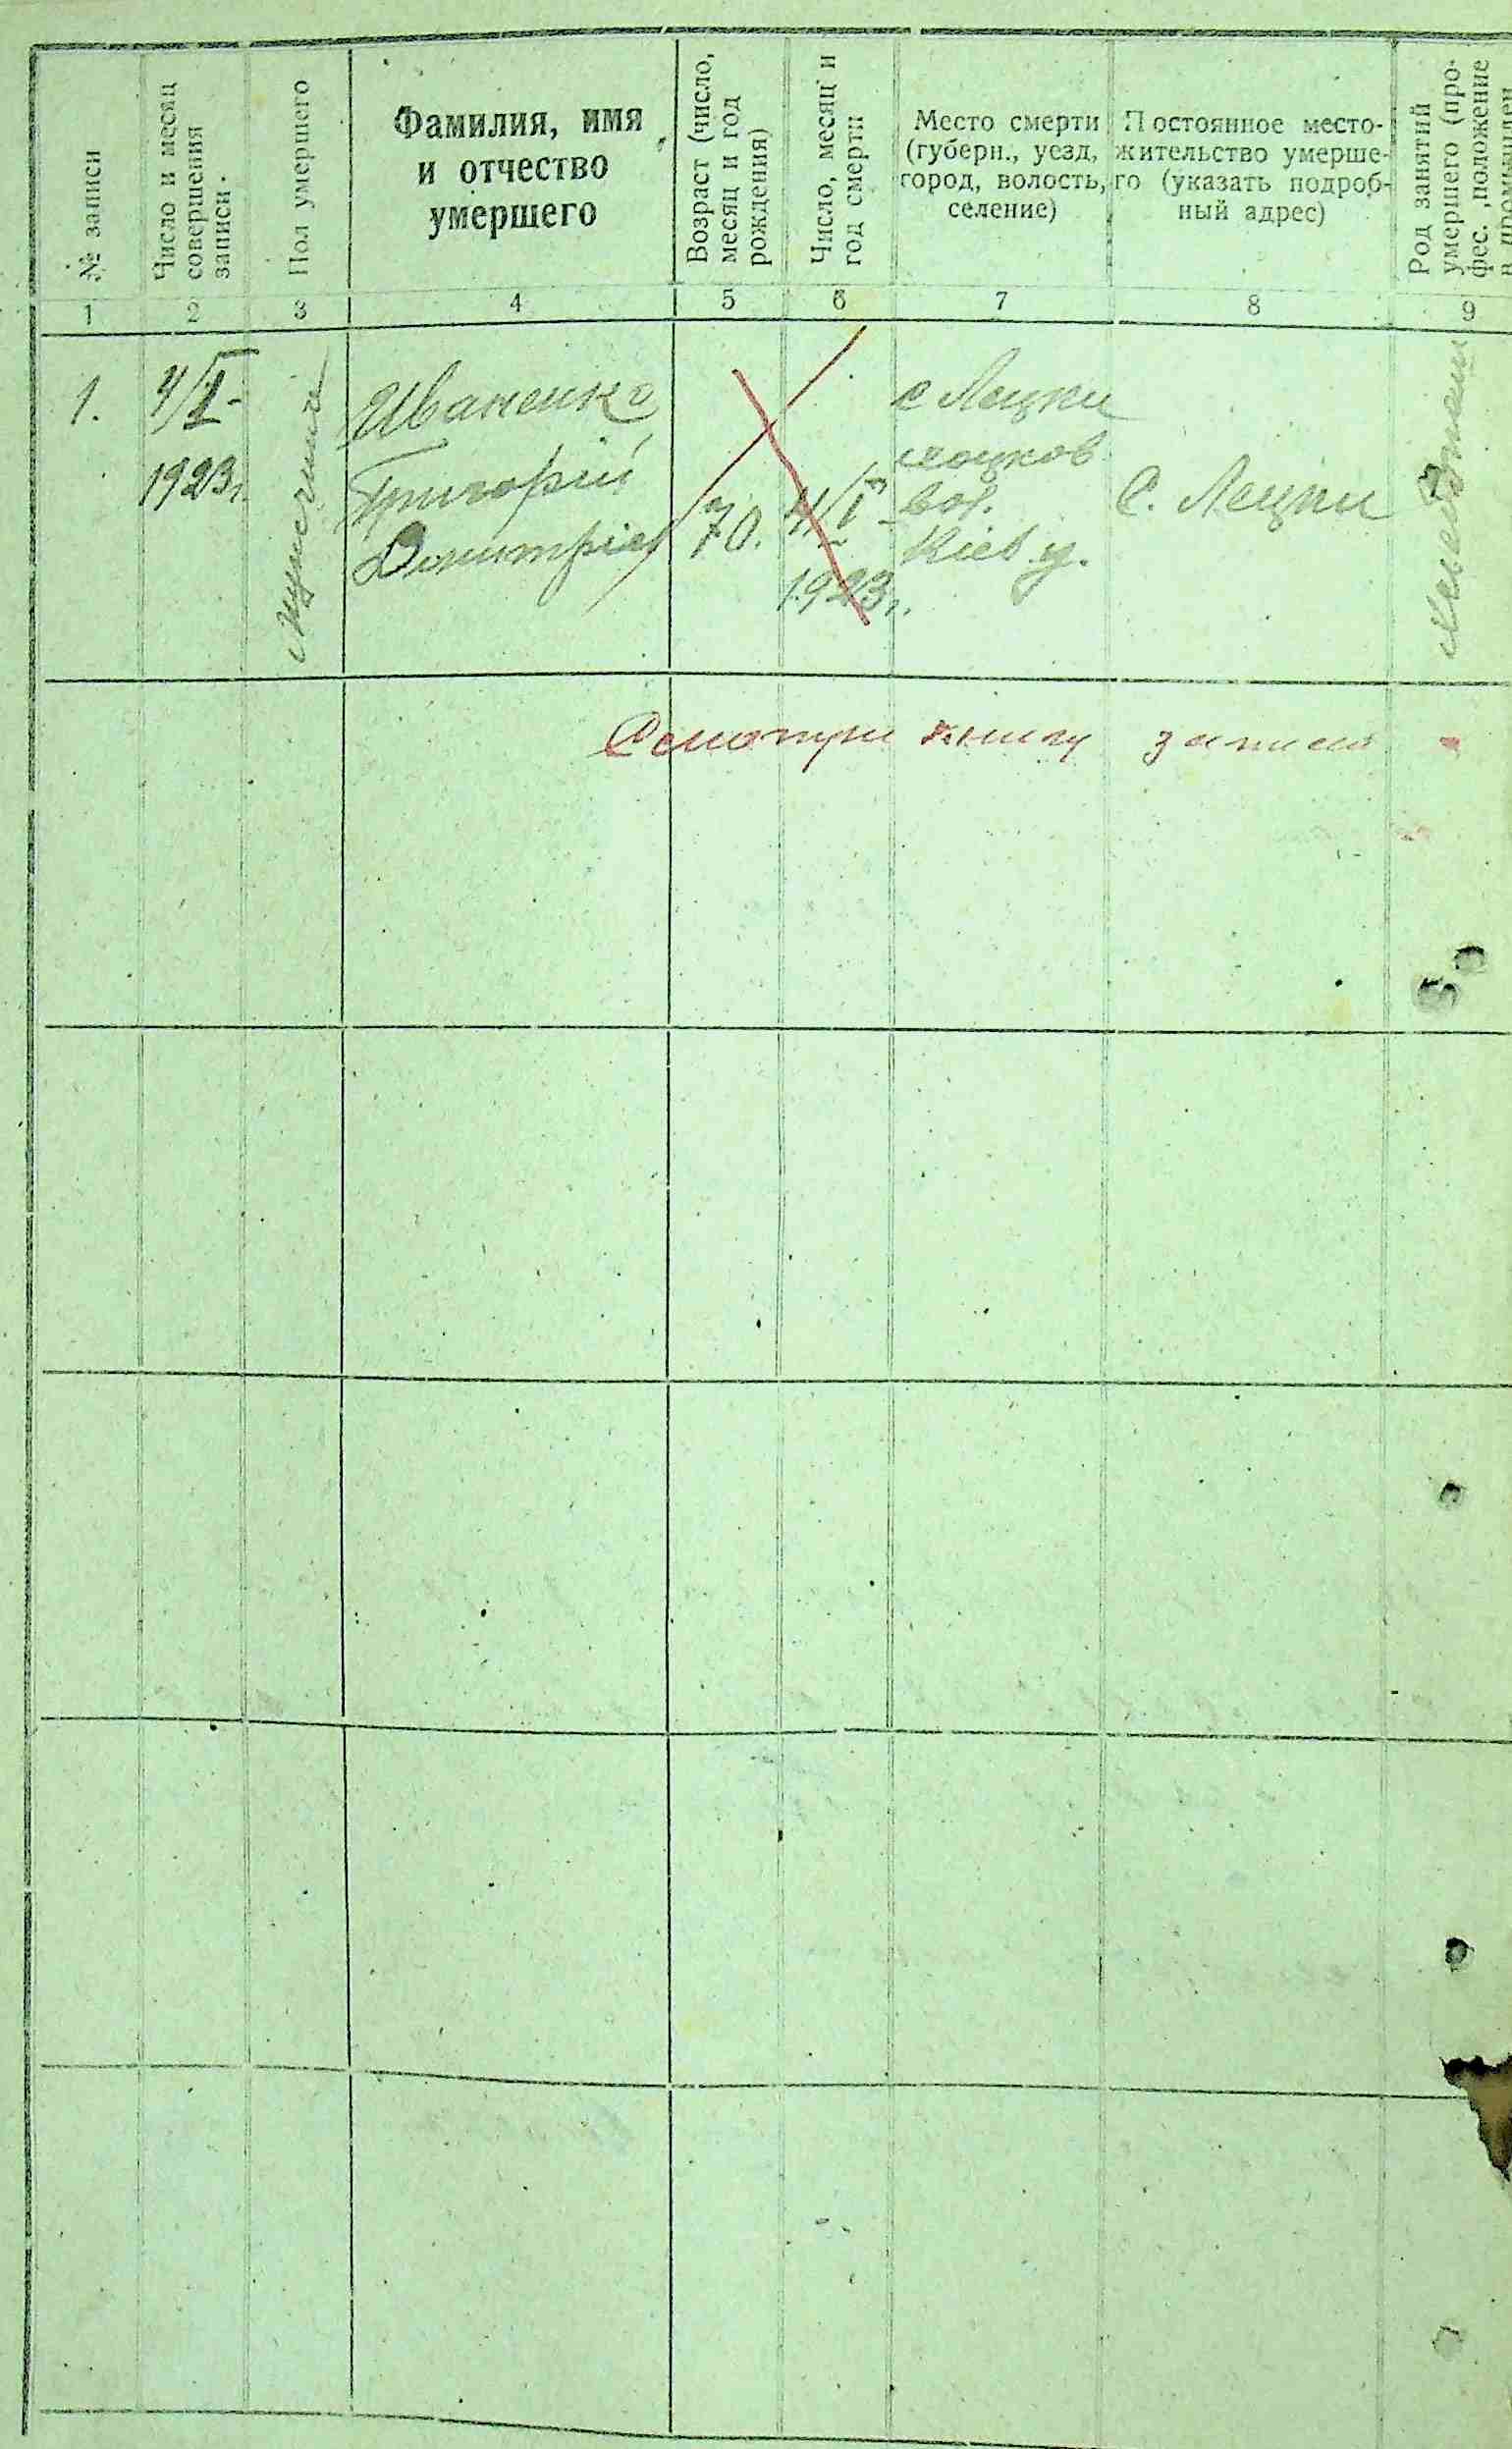 № записи
Число и месяц
совершения
записи.
Пол умершего
Фамилия, имя
и отчество
умершего
Возраст (число,
месяц и год
рождения)
Число, месяц и
год смерти
Место смерти
(губерн., уезд,
город, волость,
селение)
Постоянное место-
жительство умерше-
го (указать подроб-
ный адрес)
Род занятий
умершего (про-
фес., положение
1 2 3 4 5 6 7 8 9
1.
4/I-
1923г.
мужчина
Иваненко
Григорій
Димитріев
70.
4/I-
1923г.
с Лецки
вол.
Кіев у.
С. Лецки
Смотри книгу записи